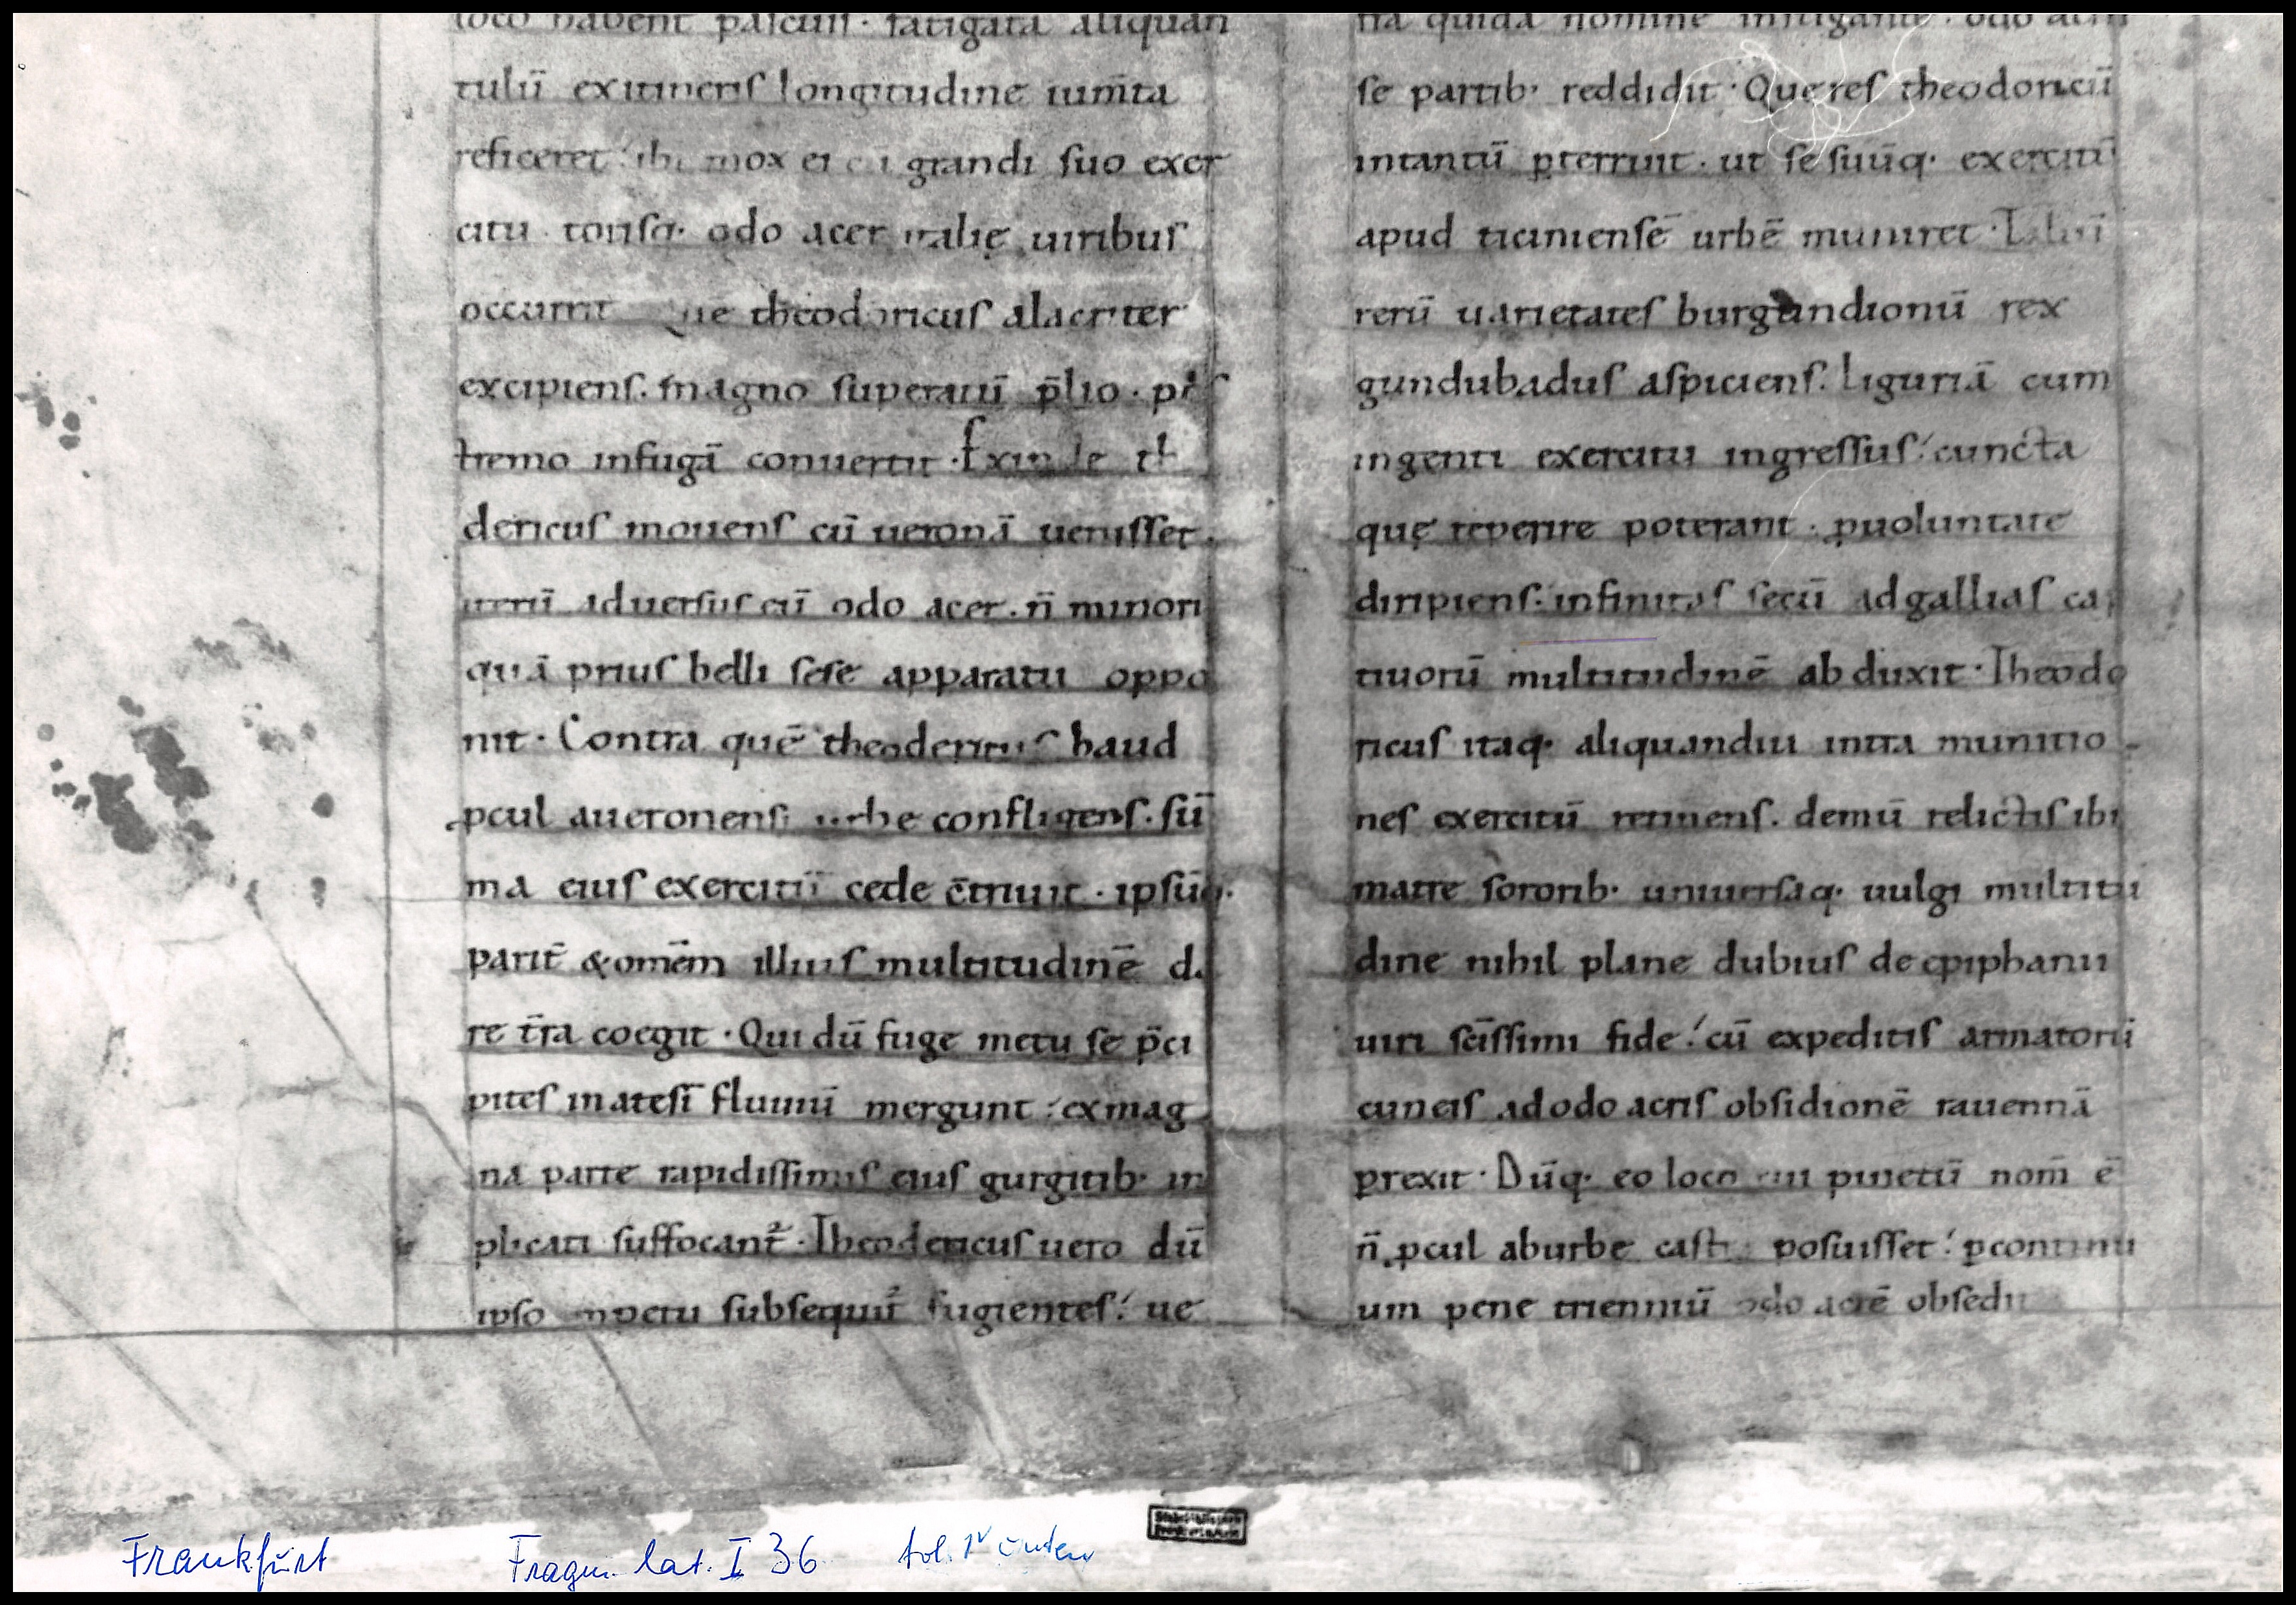 loco habent pascuis · fatigata aliquan
tulū exitineris longitudine ium̄ta
reficeret ibi mox ei cū grandi suo exer
citu totisq· odo acer italię uiribus
occurrit Que theodoricus alacriter
excipiens. magno superauit p̄lio ·
tremo infugā conuertit · Exinde th
dericus mouens cū ueronā uenisset ·
iterū aduersus eū odo acer · n̄ minori
quā prius belli sese apparatu oppo
nit · Contra quē theodericus haud
pcul aueronensi urbe confligens · sū
ma eius exercitū cede c̄triuit · ipsūq·
parit̄ & om̄em illius multitudinē da
re t̄ra coegit · Qui dū fuge metu se p̄ci
pites in atesī fluuiū mergunt : ex mag
na parte rapidissimis eius gurgitib· in
plicati suffocant̄ · Theodericus uero dū
ipso inpetu subsequit̄ fugientes : ue
tra quidā nomine instigante · odo acri
se partib· reddidit · Que res theodoricū
intantū pterruit · ut se suūq· exercitū
apud ticiniensē urbē muniret ·
rerū uarietates burgundionū rex
gundubadus aspiciens. Liguriā cum
ingenti exercitu ingressus : cuncta
quę reperire poterant · puoluntate
diripiens · infinitas secū adgallias cap
tiuorū multitudinē abduxit · Theodo
ricus itaq· aliquandiu intra munitio
nes exercitū retinens. demū relictis ibi
matre sororib· uniuersaq· uulgi multitu
dine nihil plane dubius de epiphanii
uiri sc̄issimi fide : cū expeditis armatorū
cuneis ad odo acris obsidionē rauennā
prexit · Dūq· eo loco cui pinetū nom̄ ē
n̄ pcul aburbe castra posuisset : pcontinu
um pene trienniū odo acrē obsedit
Frankfurt Fragm. lat. I 36 fol. 1v unten